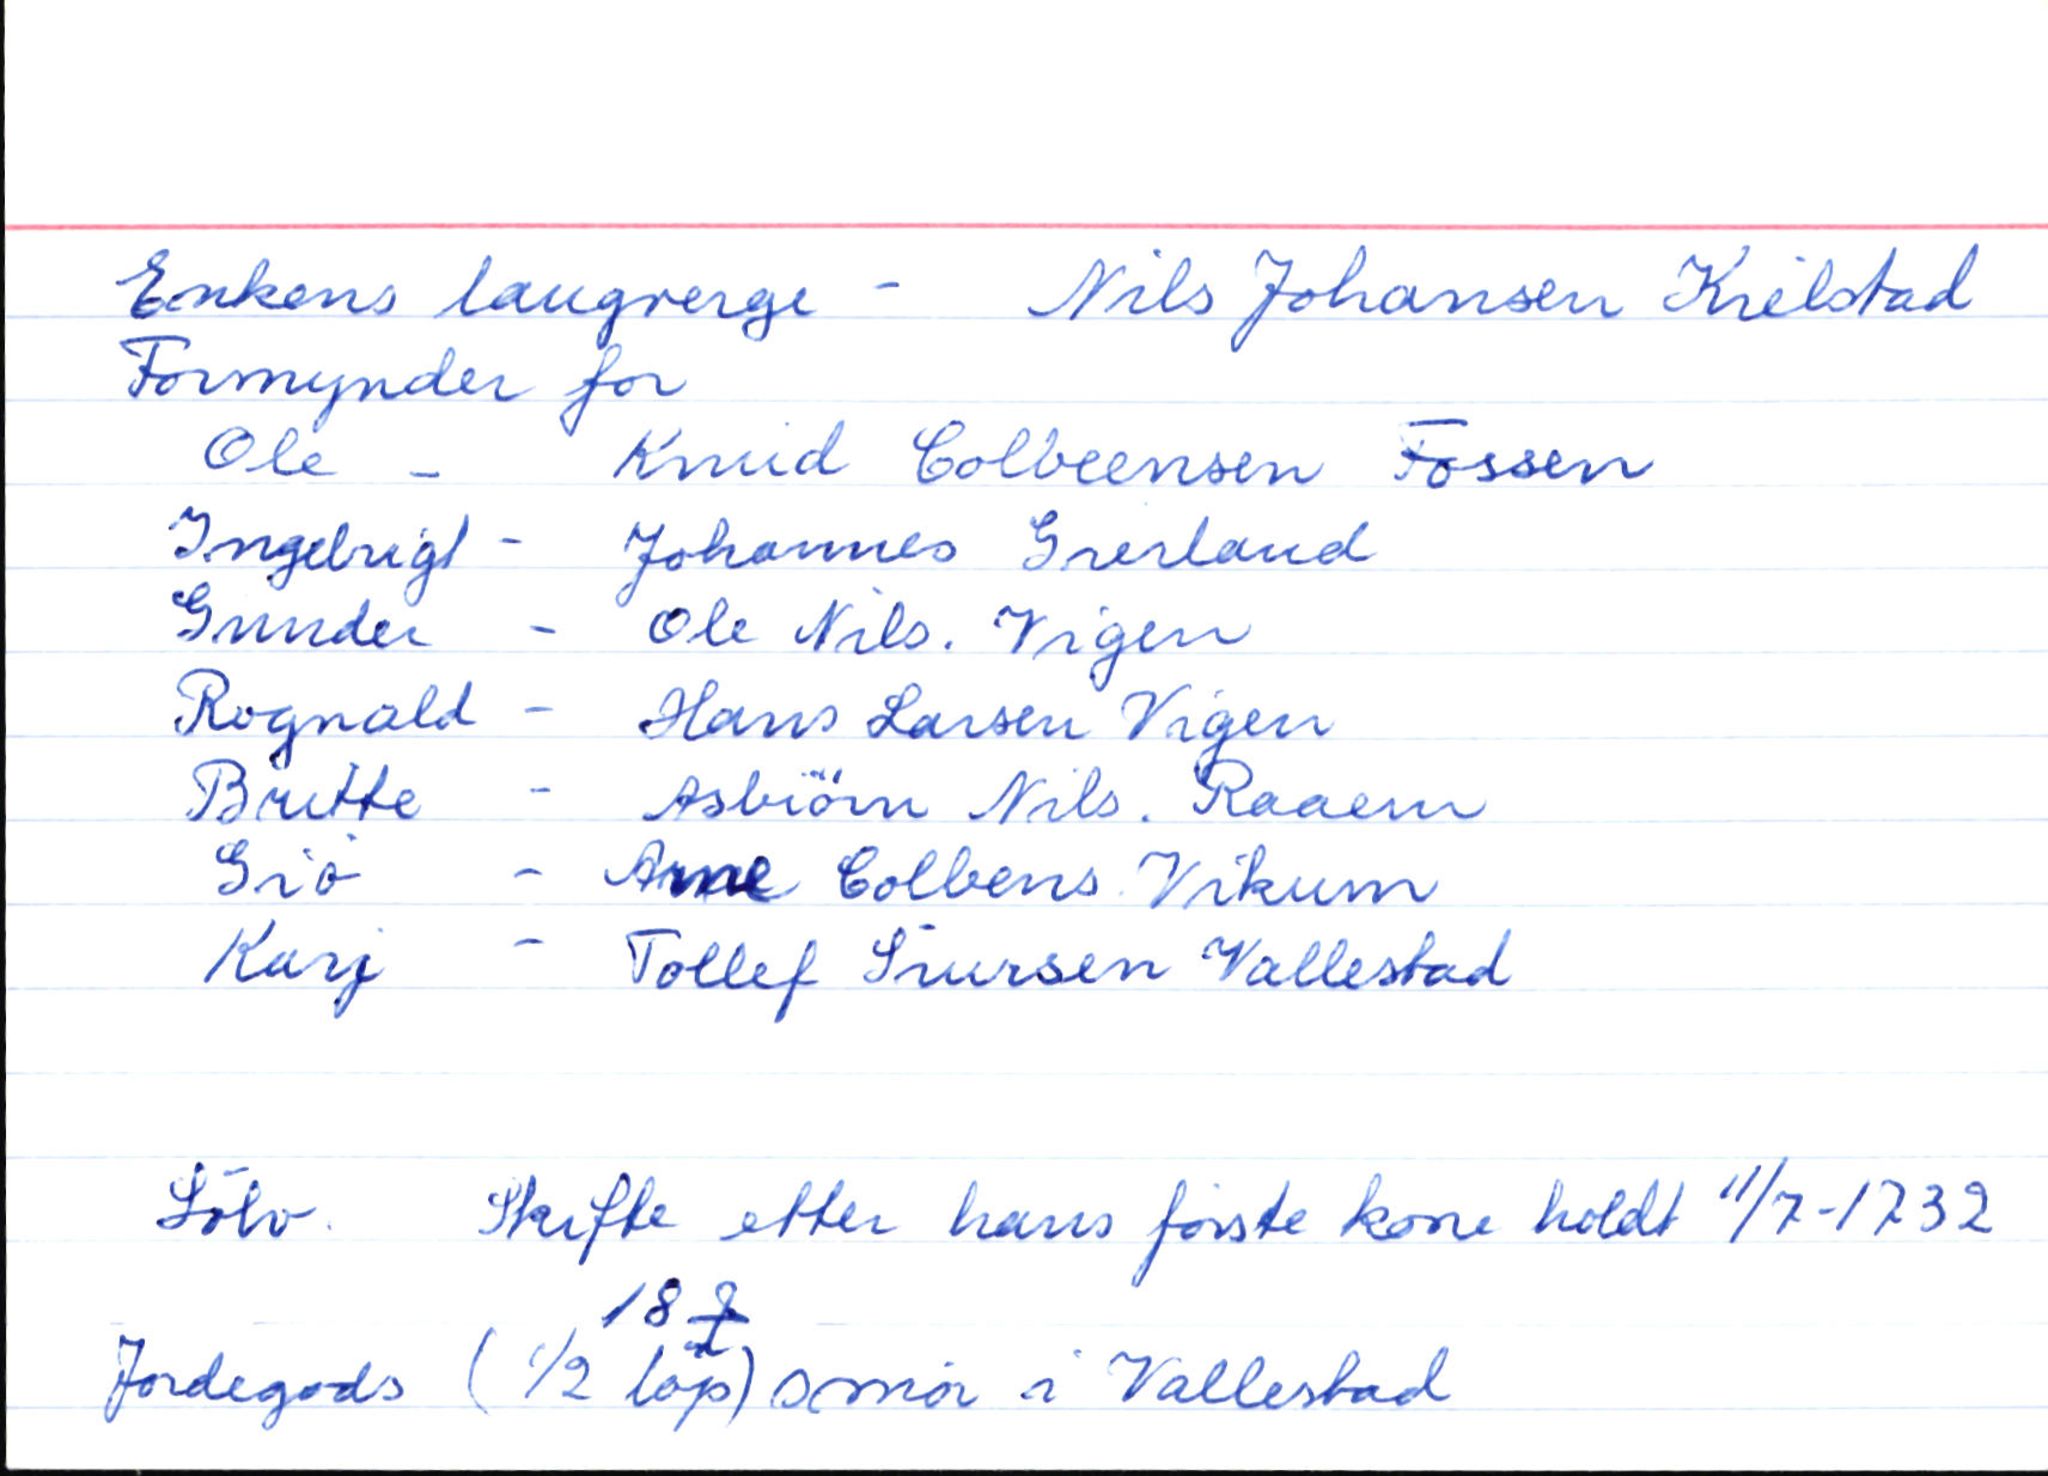 Enkens laugverge - Nils Johansen Kielstad
Formynder for
Ole - Knud Colbeensen Fossen
Ingebrigt - Johannes Grerland
Gunder - Ole Nils. Vigen
Rognald - Hans Larsen Vigen
Britte - Asbiörn Nils. Raaem
Giö - Arne Colbens. Vikum
Karj - Tollef Siursen Vallestad
Sölv. Skifte etter hans förste kone holdt 11/7-1732
18
Jordegods (1/2 löp) smör i Vallestad